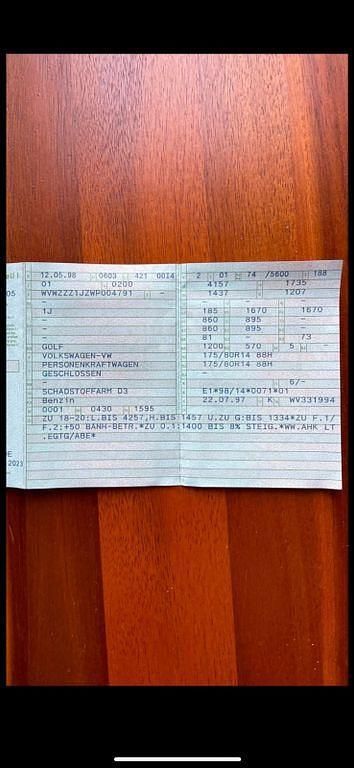 12.05.98 0603 421 0014
01 0200
WVWZZZ1JZWP004791 -
-
1J
-
-
-
GOLF
VOLKSWAGEN-VW
PERSONENKRAFTWAGEN
GESCHLOSSEN
-
SCHADSTOFFARM D3
Benzin
0001 0430 1595
2 01 74 /5600 188
4157 1735
1437 1207
- -
185 1670 1670
860 895 -
860 895 -
81 - 73
1200 570 5
175/80R14 88H
175/80R14 88H
-
- 6/-
E1*98/14*0071*01
22.07.97 K WV331994
ZU 18-20:L.BIS 4257,H.BIS 1457 U.ZU G:BIS 1334*ZU F.1/
F.2:+50 BANH-BETR.*ZU 0.1:1400 BIS 8% STEIG.*WW.AHK LT
.EGTG/ABE*
05
2023